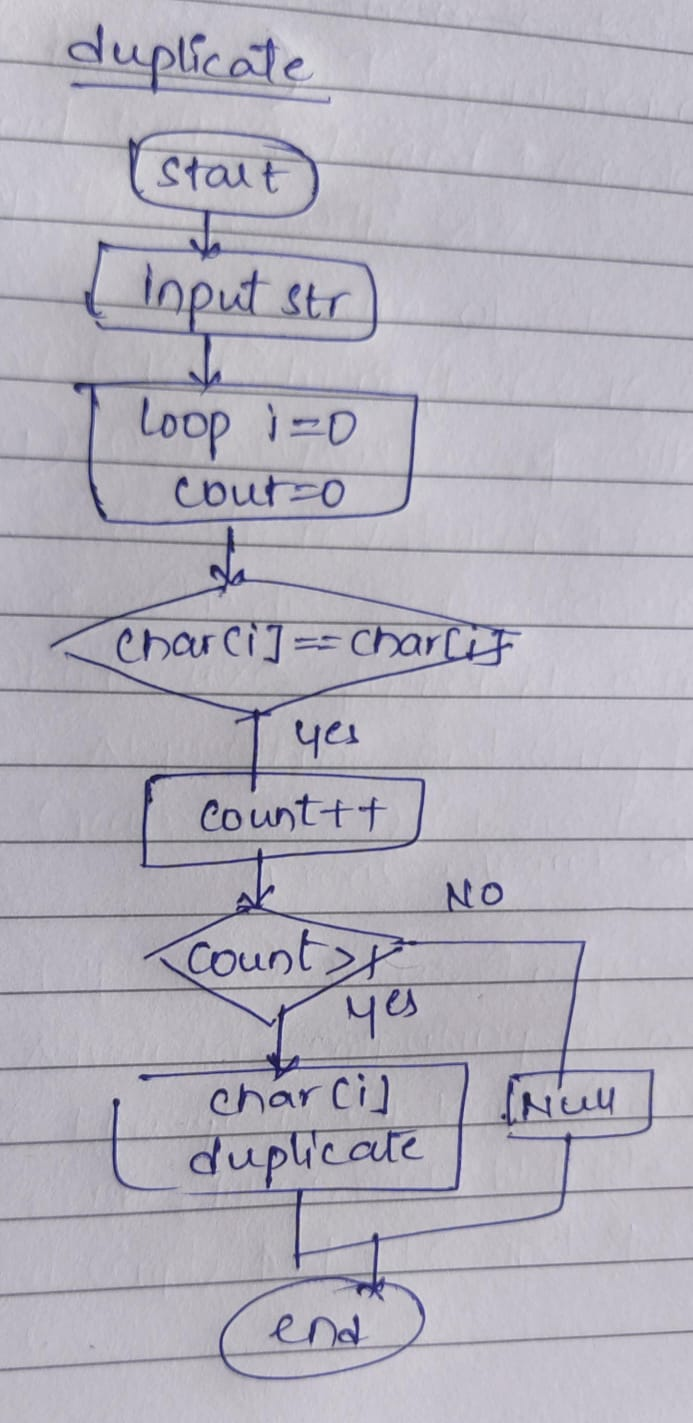 duplicate
start
input str
Loop i=0
cout=0
char[i]==char[i]
yes
count++
NO
count>1
yes
char[i]
duplicate
Null
end